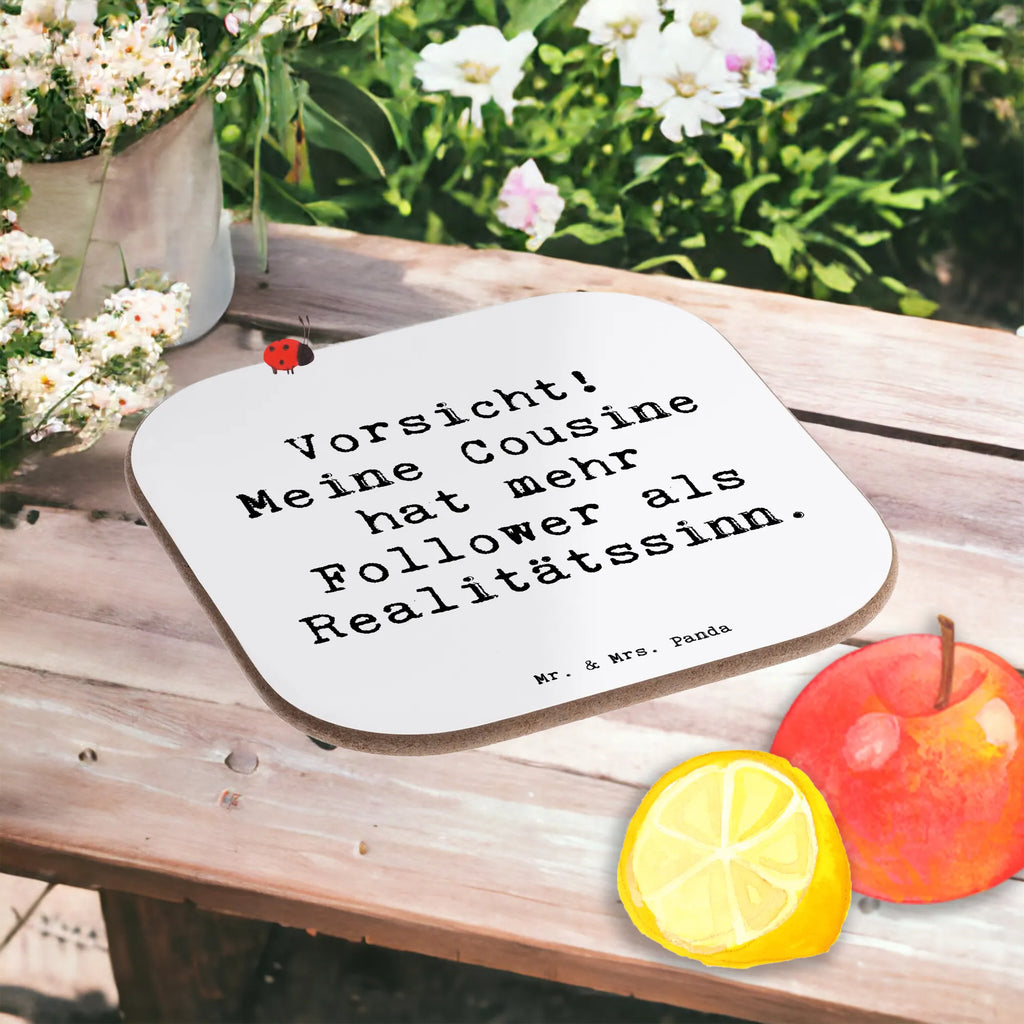 Vorsicht!
Meine Cousine
hat mehr
Follower als
Realitätssinn.
Mr. & Mrs. Panda